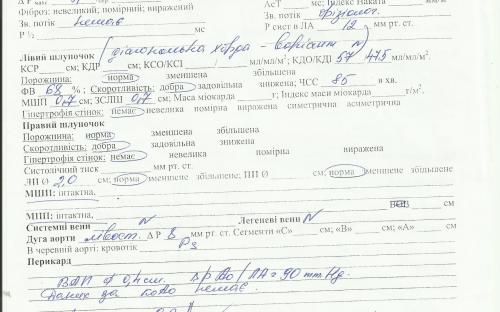 Фіброз: невеликий, помірний; виражений АсТ мс; Индекс Наката мм/м².
Зв. потік немає Зв. потік фізіолог.
Р ½ мс Р сист в ЛА 12 мм рт. ст.
Лівий шлуночок (діагональна хорда - варіант N)
КСР см; КДР см; КСО/КСІ / мл/мл/м²; КДО/КДІ 57 / 47,5 мл/мл/м².
Порожнина: норма зменшена збільшена
ФВ 68 %; Скоротливість: добра задовільна знижена; ЧСС 85 в хв.
МШП 0,7 см; ЗСЛШ 0,7 см; Маса міокарда г; Індекс маси міокарда г/м².
Гіпертрофія стінок: немає невелика помірна виражена симетрична асиметрична
Правий шлуночок
Порожнина: норма зменшена збільшена
Скоротливість: добра задовільна знижена
Гіпертрофія стінок: немає невелика помірна виражена
Систолічний тиск мм рт. ст.
ЛП Ø 2,0 см; норма зменшене збільшене; ПП Ø см; норма зменшене збільшене
МШП: інтактна,
МПП: інтактна, см
Системні вени N Легеневі вени N
Дуга аорти лівост. Δ Р 8 мм рт. ст. Сегменти «С» см; «В» см; «А» см
В черевний аорті: кровотік Ps
Перикард
ВАП d 0,4 см. Δ Р Ао / ЛА = 90 mm Hg.
Даних за КоАо немає.